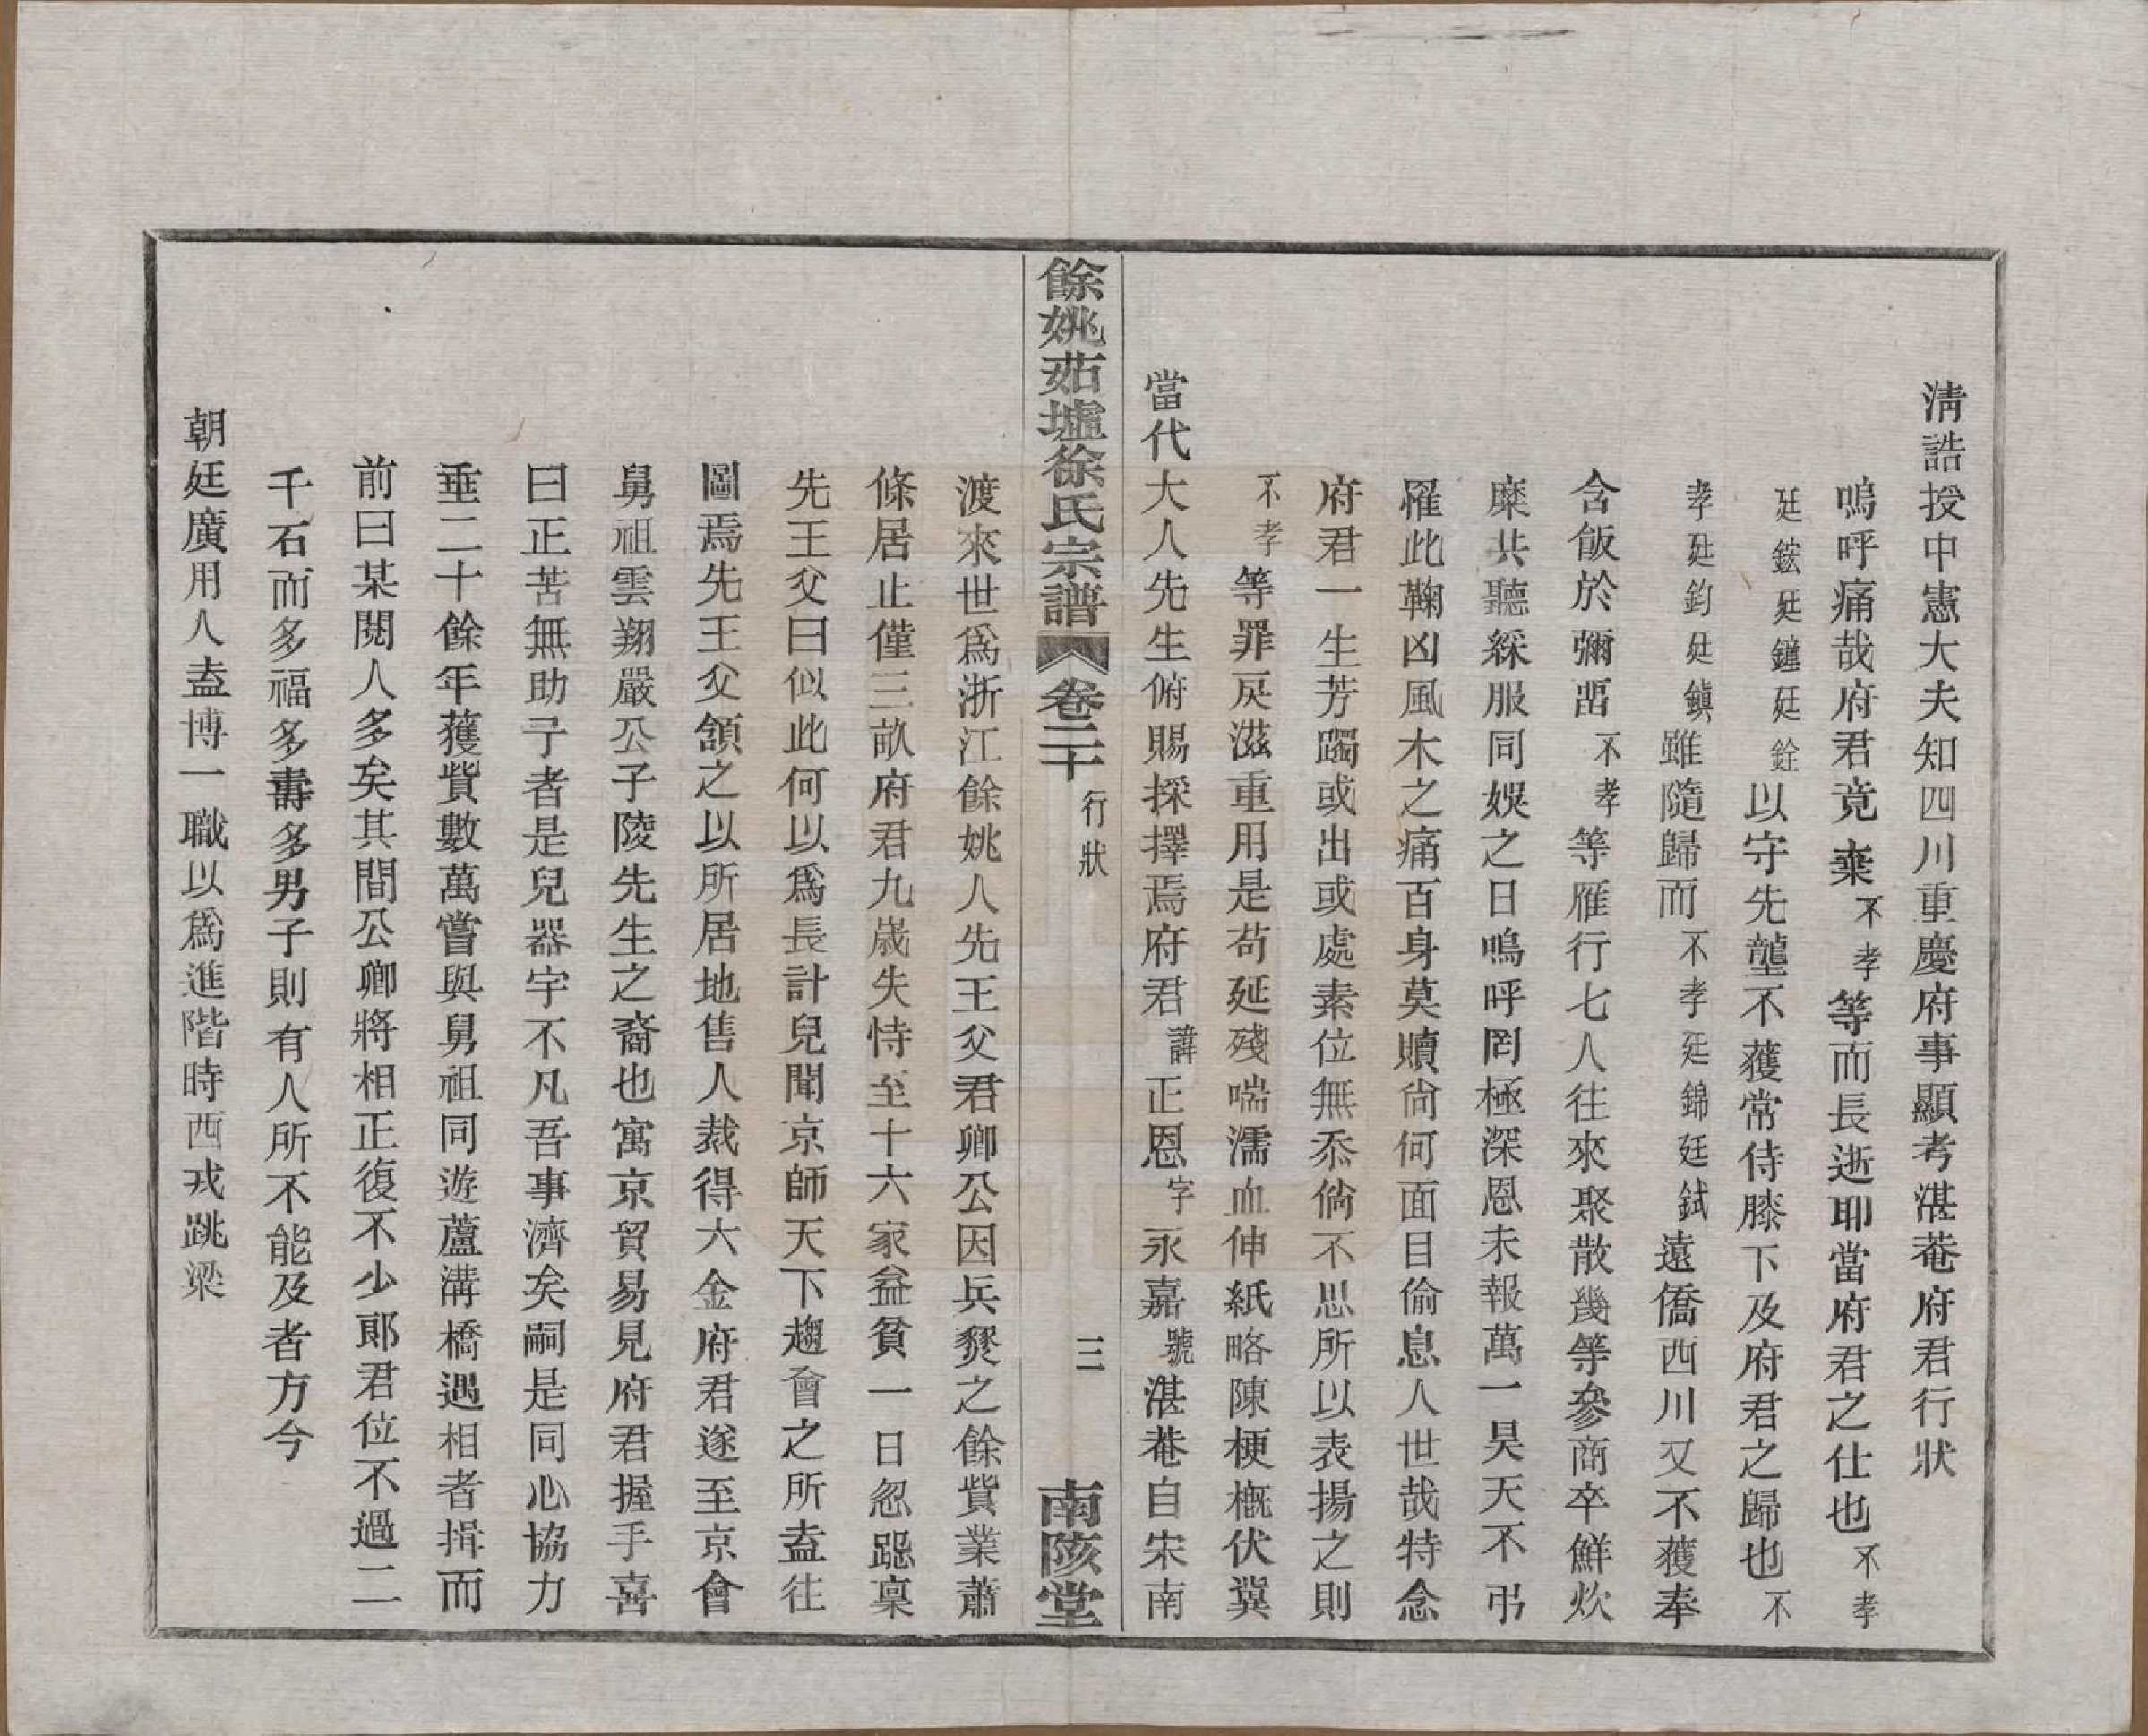 清誥授中憲大夫知四川重慶府事顯考湛菴府君行狀
嗚呼痛哉府君竟棄不孝等而長逝耶當府君之仕也不孝
廷鋐廷鏈廷銓以守先壟不獲常侍膝下及府君之歸也不
孝廷鈞廷鎮雖隨歸而不孝廷錦廷鉽遠僑西川又不獲奉
含飯於彌畱不孝等雁行七人往來聚散幾等參商卒鮮炊
糜共聽綵服同娛之日嗚呼罔極深恩未報萬一昊天不弔
罹此鞠凶風木之痛百身莫贖尙何面目偷息人世哉特念
府君一生芳躅或出或處素位無忝倘不思所以表揚之則
不孝等罪戾滋重用是苟延殘喘濡血伸紙略陳梗槪伏冀
當代大人先生俯賜採擇焉府君諱正恩字永嘉號湛菴自宋南
餘姚茹墟徐氏宗譜 卷二十 行狀 三 南陔堂
渡來世爲浙江餘姚人先王父君卿公因兵燹之餘貲業蕭
條居止僅三畝府君九歲失恃至十六家益貧一日忽跽稟
先王父曰似此何以爲長計兒聞京師天下趨會之所盍往
圖焉先王父頷之以所居地售人裁得六金府君遂至京會
舅祖雲翔嚴公子陵先生之裔也寓京貿易見府君握手喜
曰正苦無助予者是兒器宇不凡吾事濟矣嗣是同心協力
垂二十餘年獲貲數萬嘗與舅祖同遊蘆溝橋遇相者揖而
前曰某閱人多矣其間公卿將相正復不少郎君位不過二
千石而多福多壽多男子則有人所不能及者方今
朝廷廣用人盍博一職以爲進階時西戎跳梁